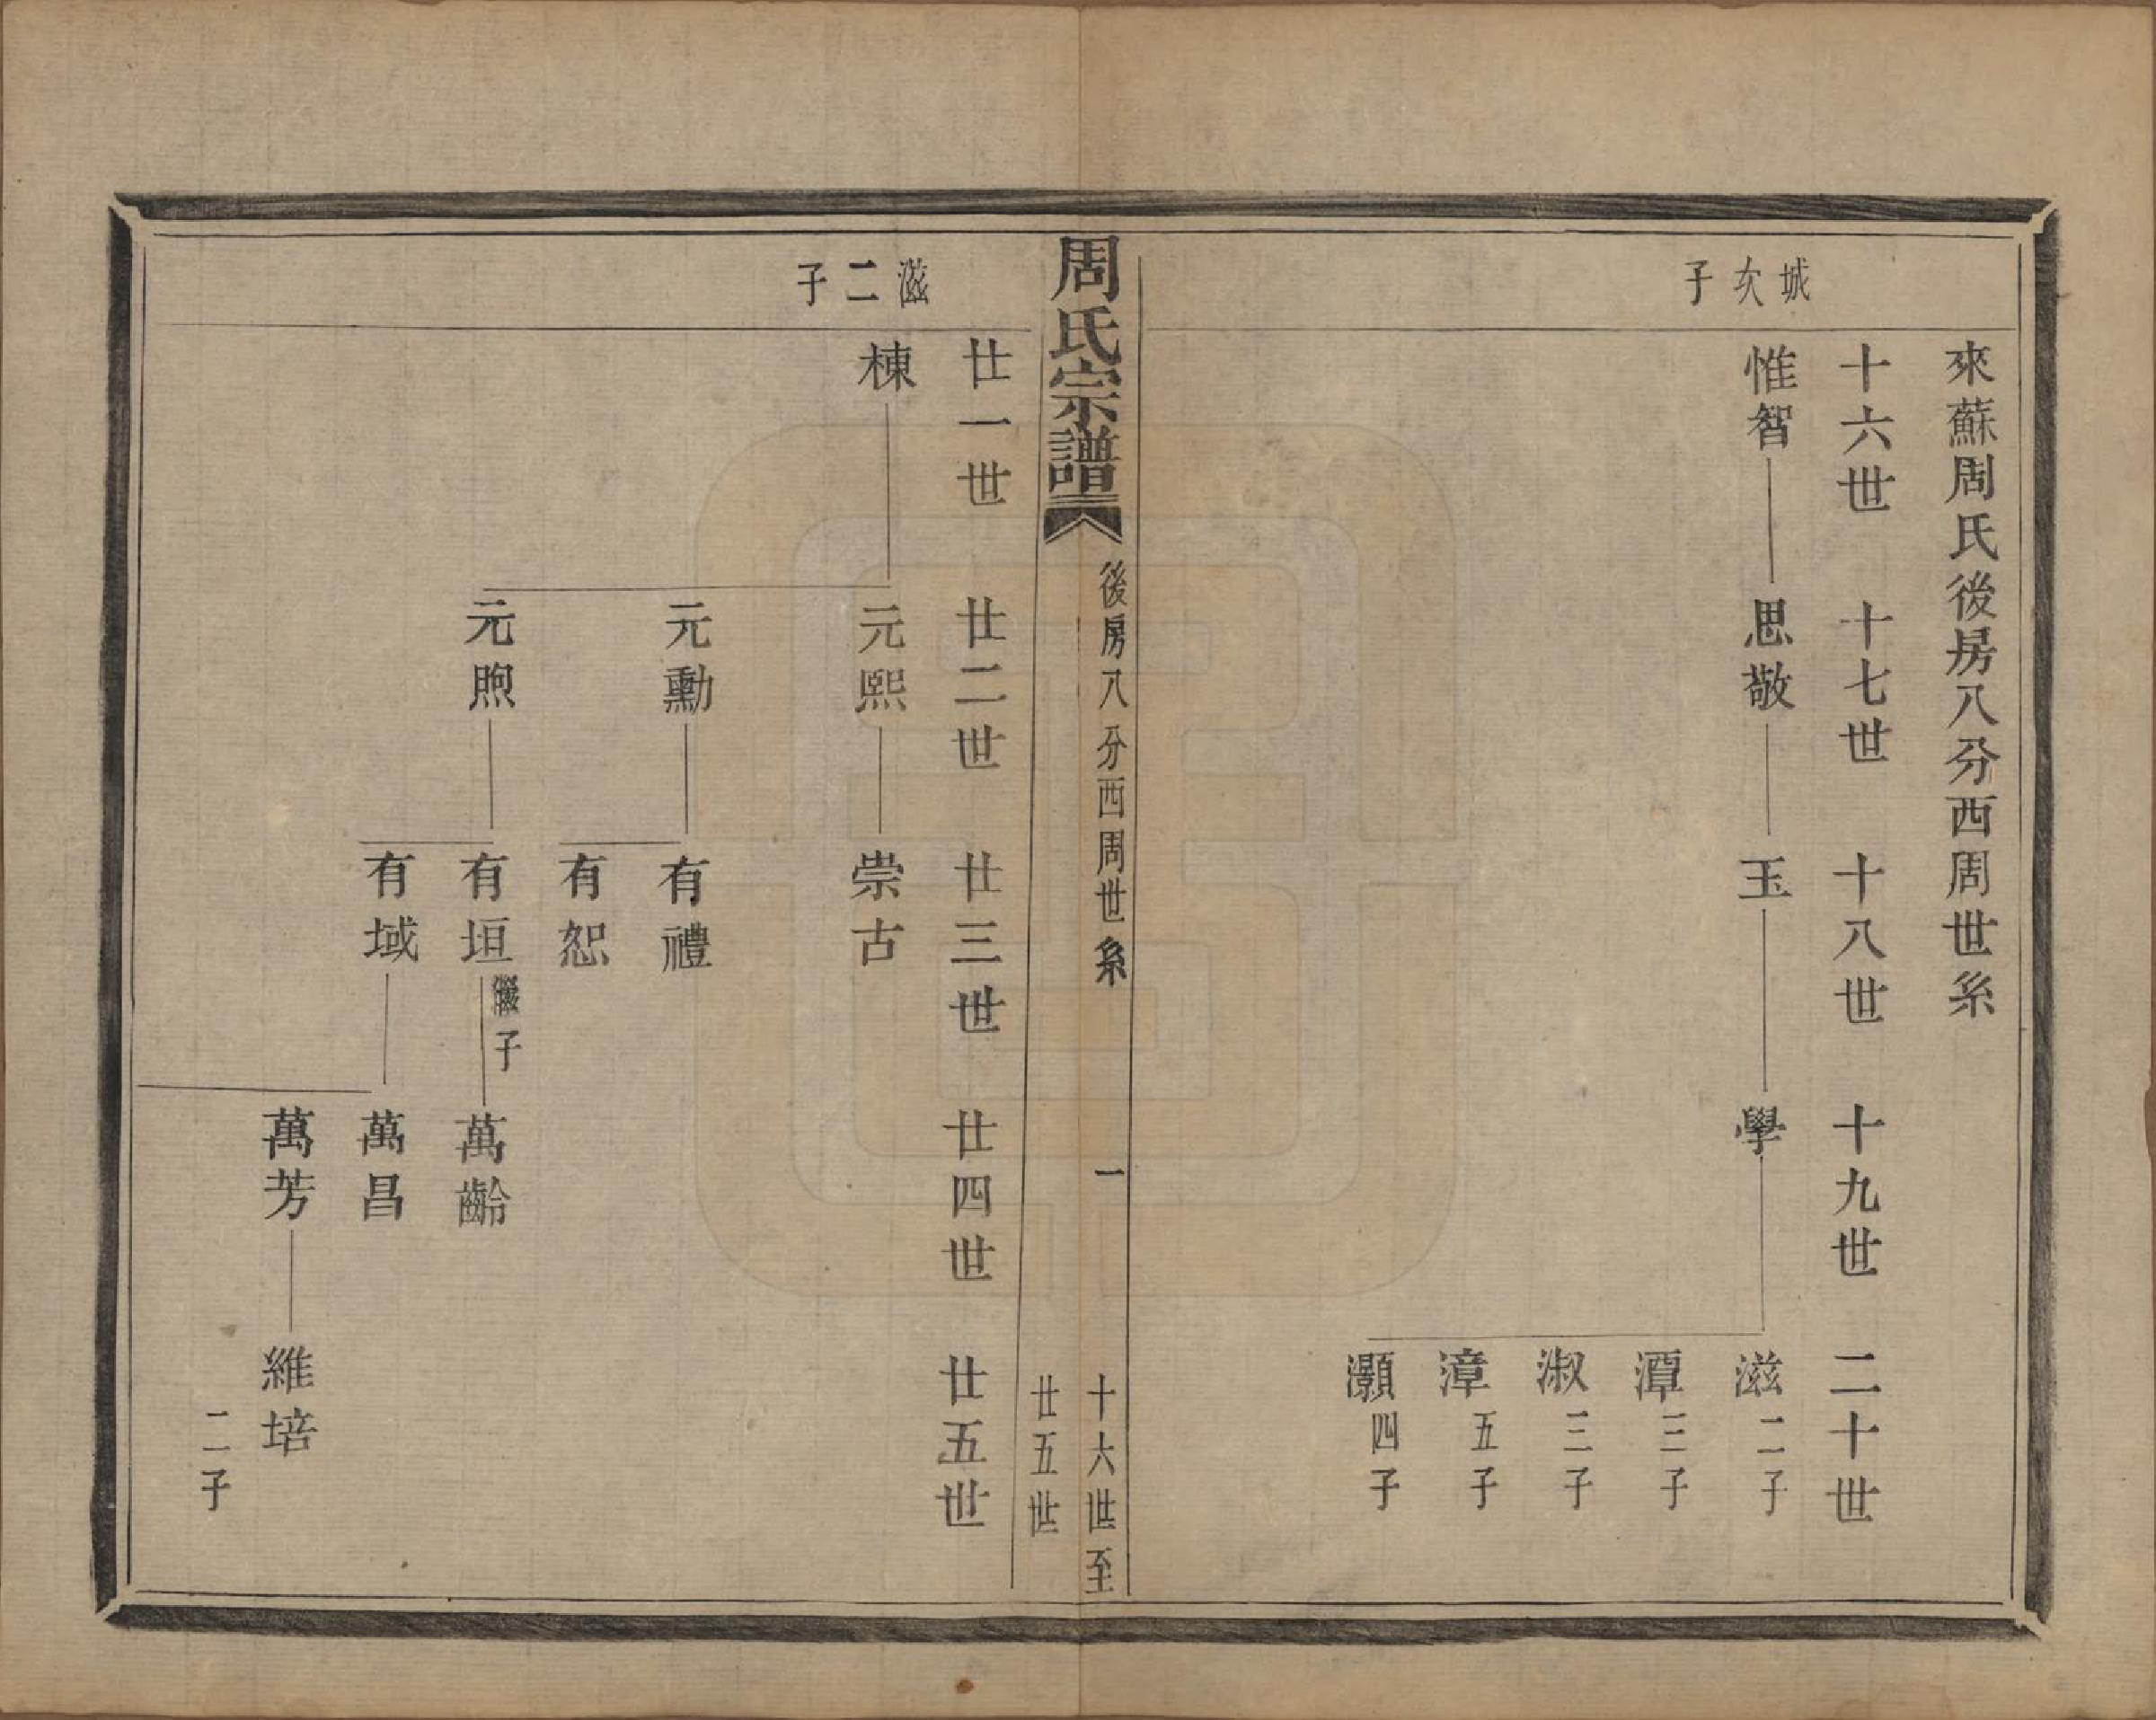 來蘇周氏後房八分西周世系
十六世 十七世 十八世 十九世 二十世
城次子
惟智 思敬 玉 學 滋二子
潭三子
淑三子
漳五子
灝四子
周氏宗譜 後房八分西周世系 一 十六世至
廿五世
廿一世 廿二世 廿三世 廿四世 廿五世
滋二子
棟 元熙 崇古
元勳 有禮
有恕
元煦 有垣 繼子 萬齡
有域 萬昌
萬芳 維培
二子